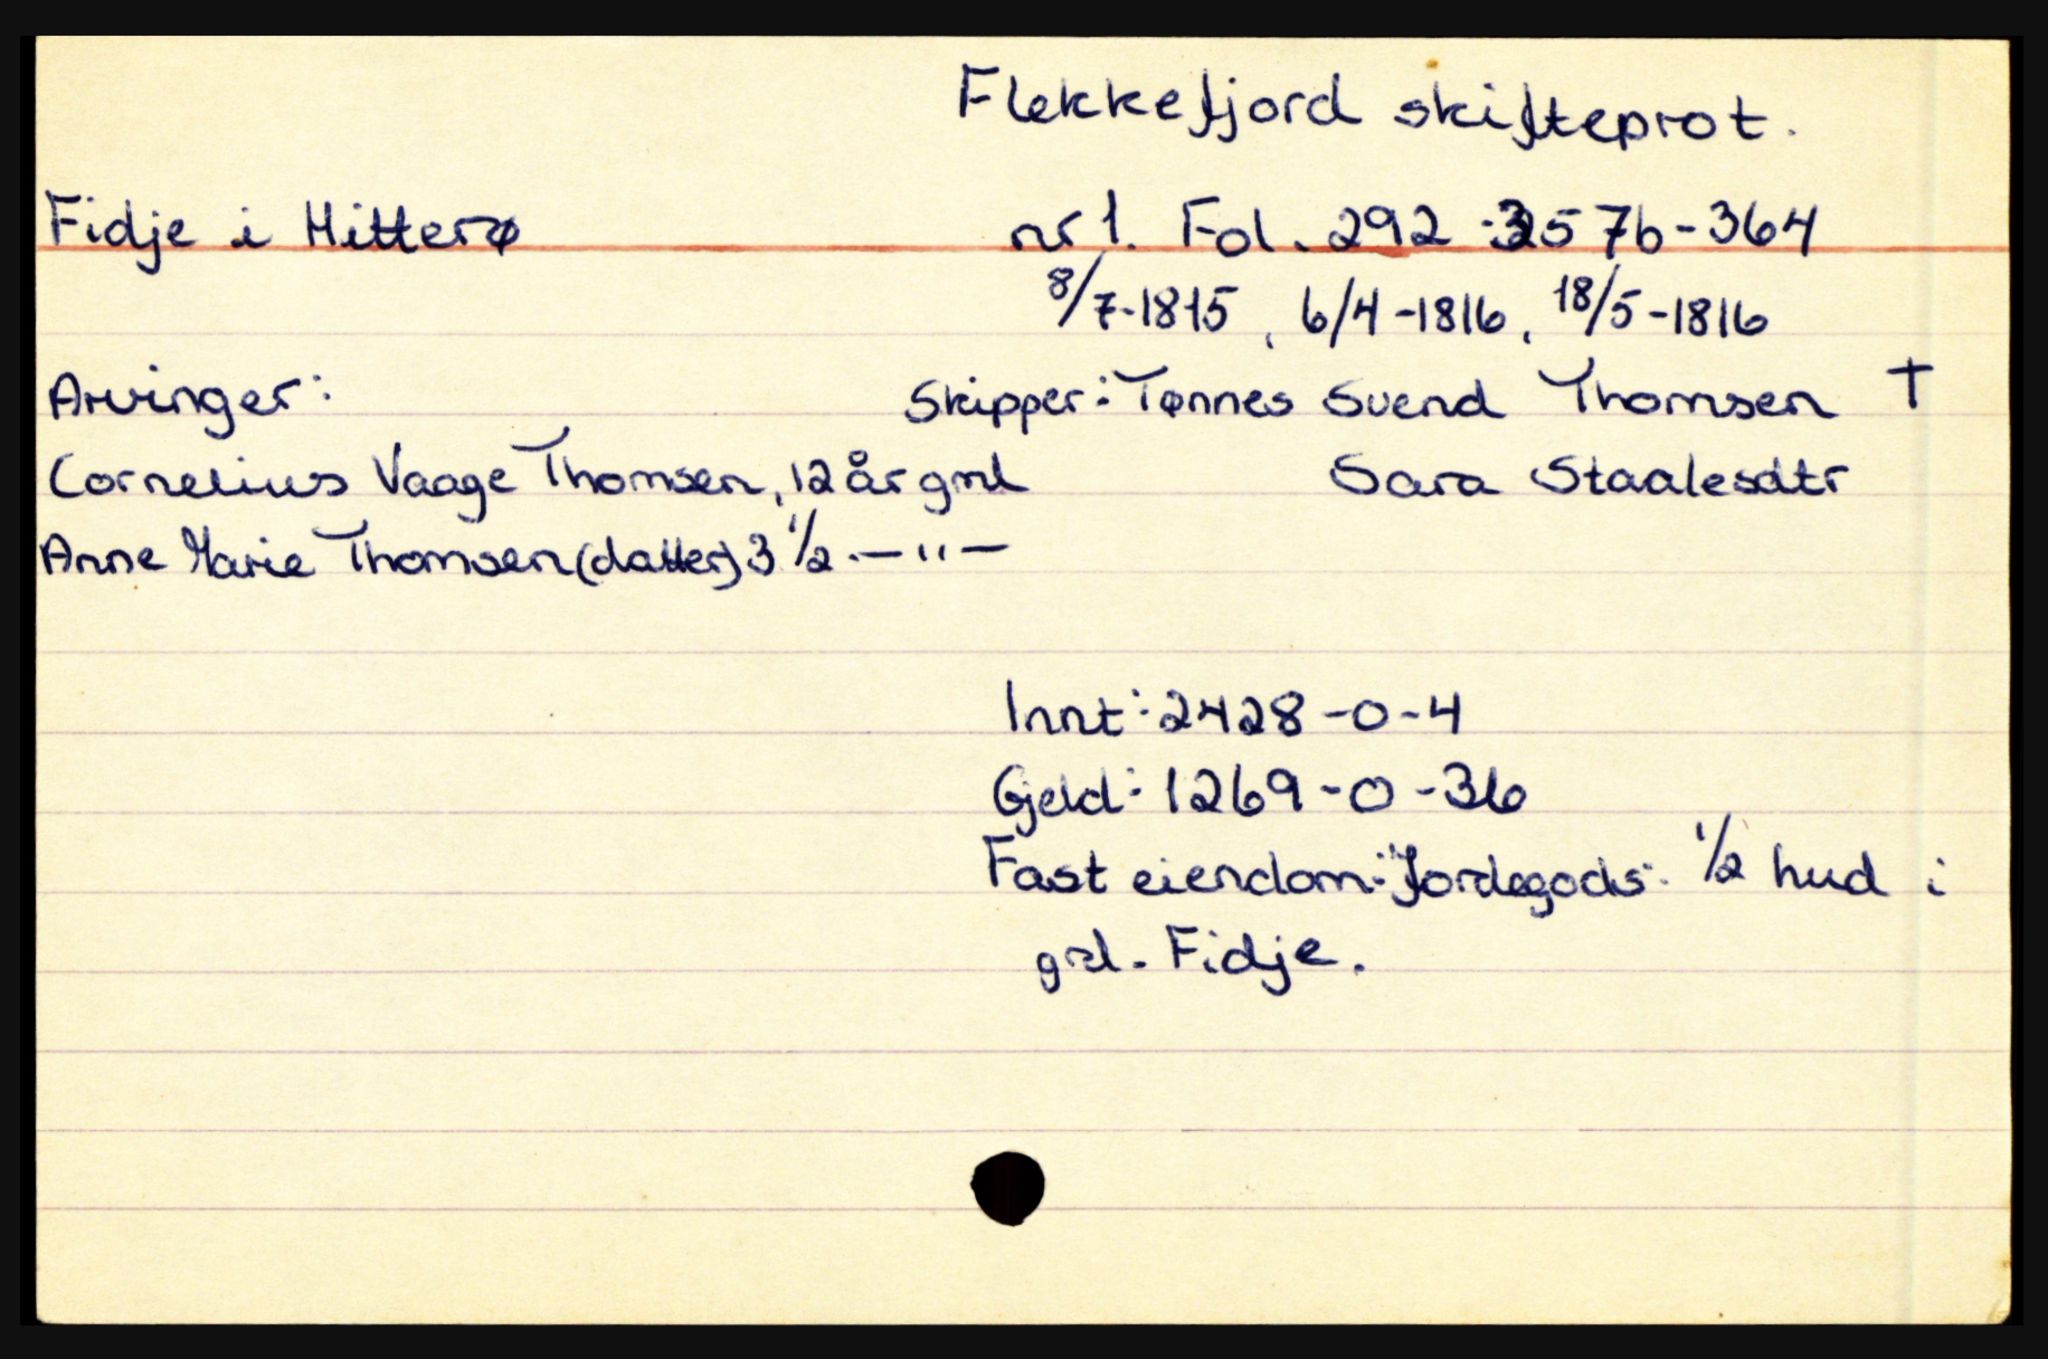 Flekkefjord skifteprot.
Fidje i Hitterø
nr 1. Fol. 292 - 357b - 364
8/7-1815, 6/4-1816, 18/5-1816
Arvinger:
Skipper: Tønnes Svend Thomsen †
Cornelius Vaage Thomsen, 12 år gml
Sara Staalesdtr
Anne Marie Thomsen (datter) 3 1/2 - " -
Innt: 2428-0-4
Gjeld: 1269-0-36
Fast eiendom: Jordegods: 1/2 hud i
grd. Fidje.